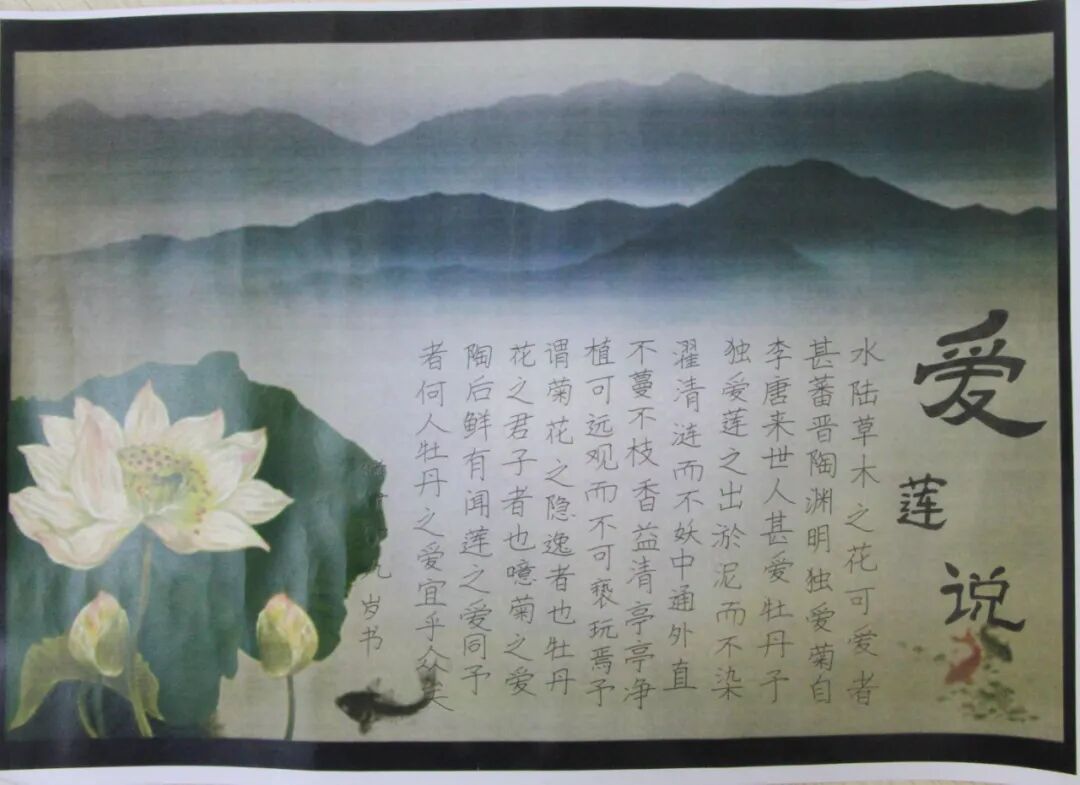 爱莲说
水陆草木之花可爱者
甚蕃晋陶渊明独爱菊自
李唐来世人甚爱牡丹予
独爱莲之出淤泥而不染
濯清涟而不妖中通外直
不蔓不枝香益清亭亭净
植可远观而不可亵玩焉予
谓菊花之隐逸者也牡丹
花之君子者也噫菊之爱
陶后鲜有闻莲之爱同予
者何人牡丹之爱宜乎众矣
九岁书